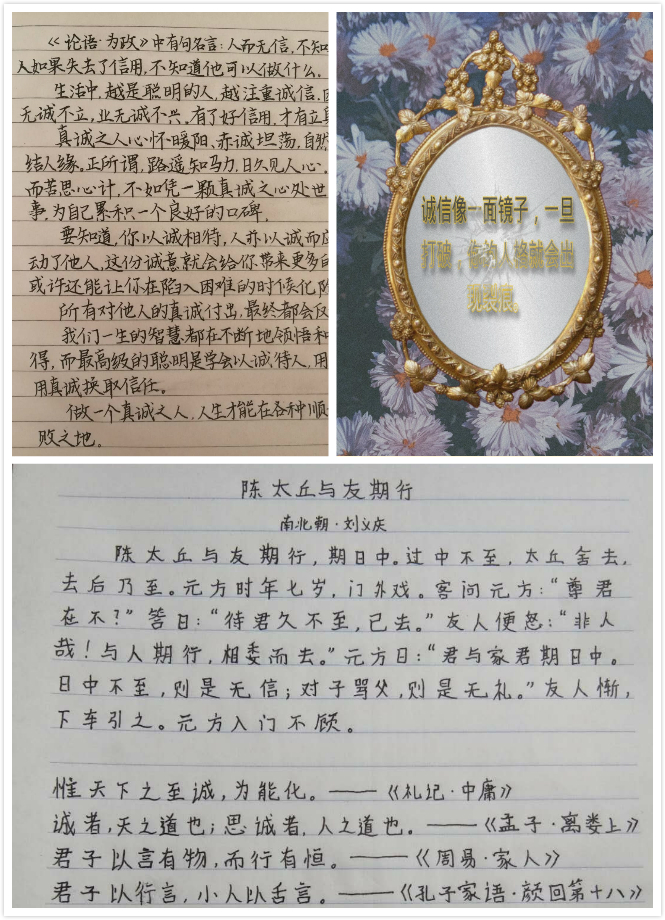 《论语·为政》中有句名言:人而无信,不知
人如果失去了信用,不知道他可以做什么。
生活中,越是聪明的人,越注重诚信。
无诚不立,业无诚不兴,有了好信用,才有立
真诚之人心怀暖阳,赤诚坦荡,自然
结人缘。正所谓,路遥知马力,日久见人心。
而苦思心计,不如凭一颗真诚之心处世
事,为自己累积一个良好的口碑。
要知道,你以诚相待,人亦以诚而
动了他人,这份诚意就会给你带来更多
或许还能让你在陷入困难的时候化
所有对他人的真诚付出,最终都会
我们一生的智慧都在不断地领悟和
得,而最高级的聪明是学会以诚待人,用
用真诚换取信任。
做一个真诚之人,人生才能在各种顺
败之地。
诚信像一面镜子,一旦
打破,你的人格就会出
现裂痕。
陈太丘与友期行
南北朝·刘义庆
陈太丘与友期行,期日中。过中不至,太丘舍去,
去后乃至。元方时年七岁,门外戏。客问元方:“尊君
在不?”答曰:“待君久不至,已去。”友人便怒:“非人
哉!与人期行,相委而去。”元方曰:“君与家君期日中。
日中不至,则是无信;对子骂父,则是无礼。”友人惭,
下车引之。元方入门不顾。
惟天下之至诚,为能化。——《礼记·中庸》
诚者,天之道也;思诚者,人之道也。——《孟子·离娄上》
君子以言有物,而行有恒。——《周易·家人》
君子以行言,小人以舌言。——《孔子家语·颜回第十八》